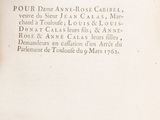 POUR Dame ANNE-ROSE CABIBEL,
veuve du Sieur JEAN CALAS, Mar-
chand à Toulouse; LOUIS & LOUIS-
DONAT CALAS leurs fils; & ANNE-
ROSE & ANNE CALAS leurs filles,
Demandeurs en cassation d'un Arrêt du
Parlement de Toulouse du 9 Mars 1762.